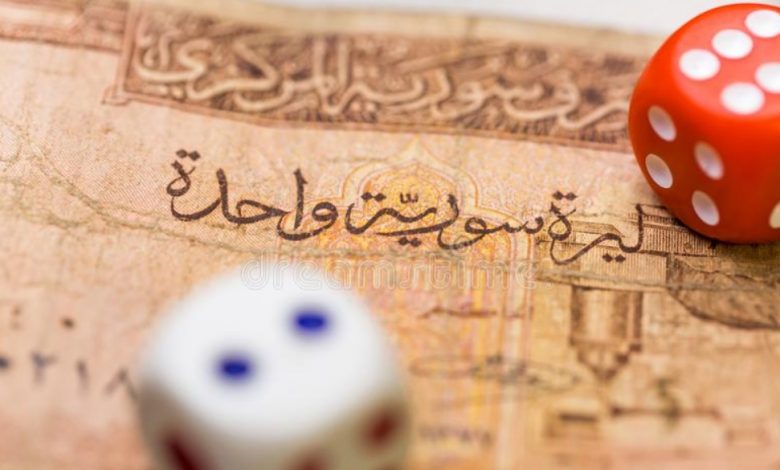 سورية المركزي
ليرة سوريّة واحدة
dreamstime